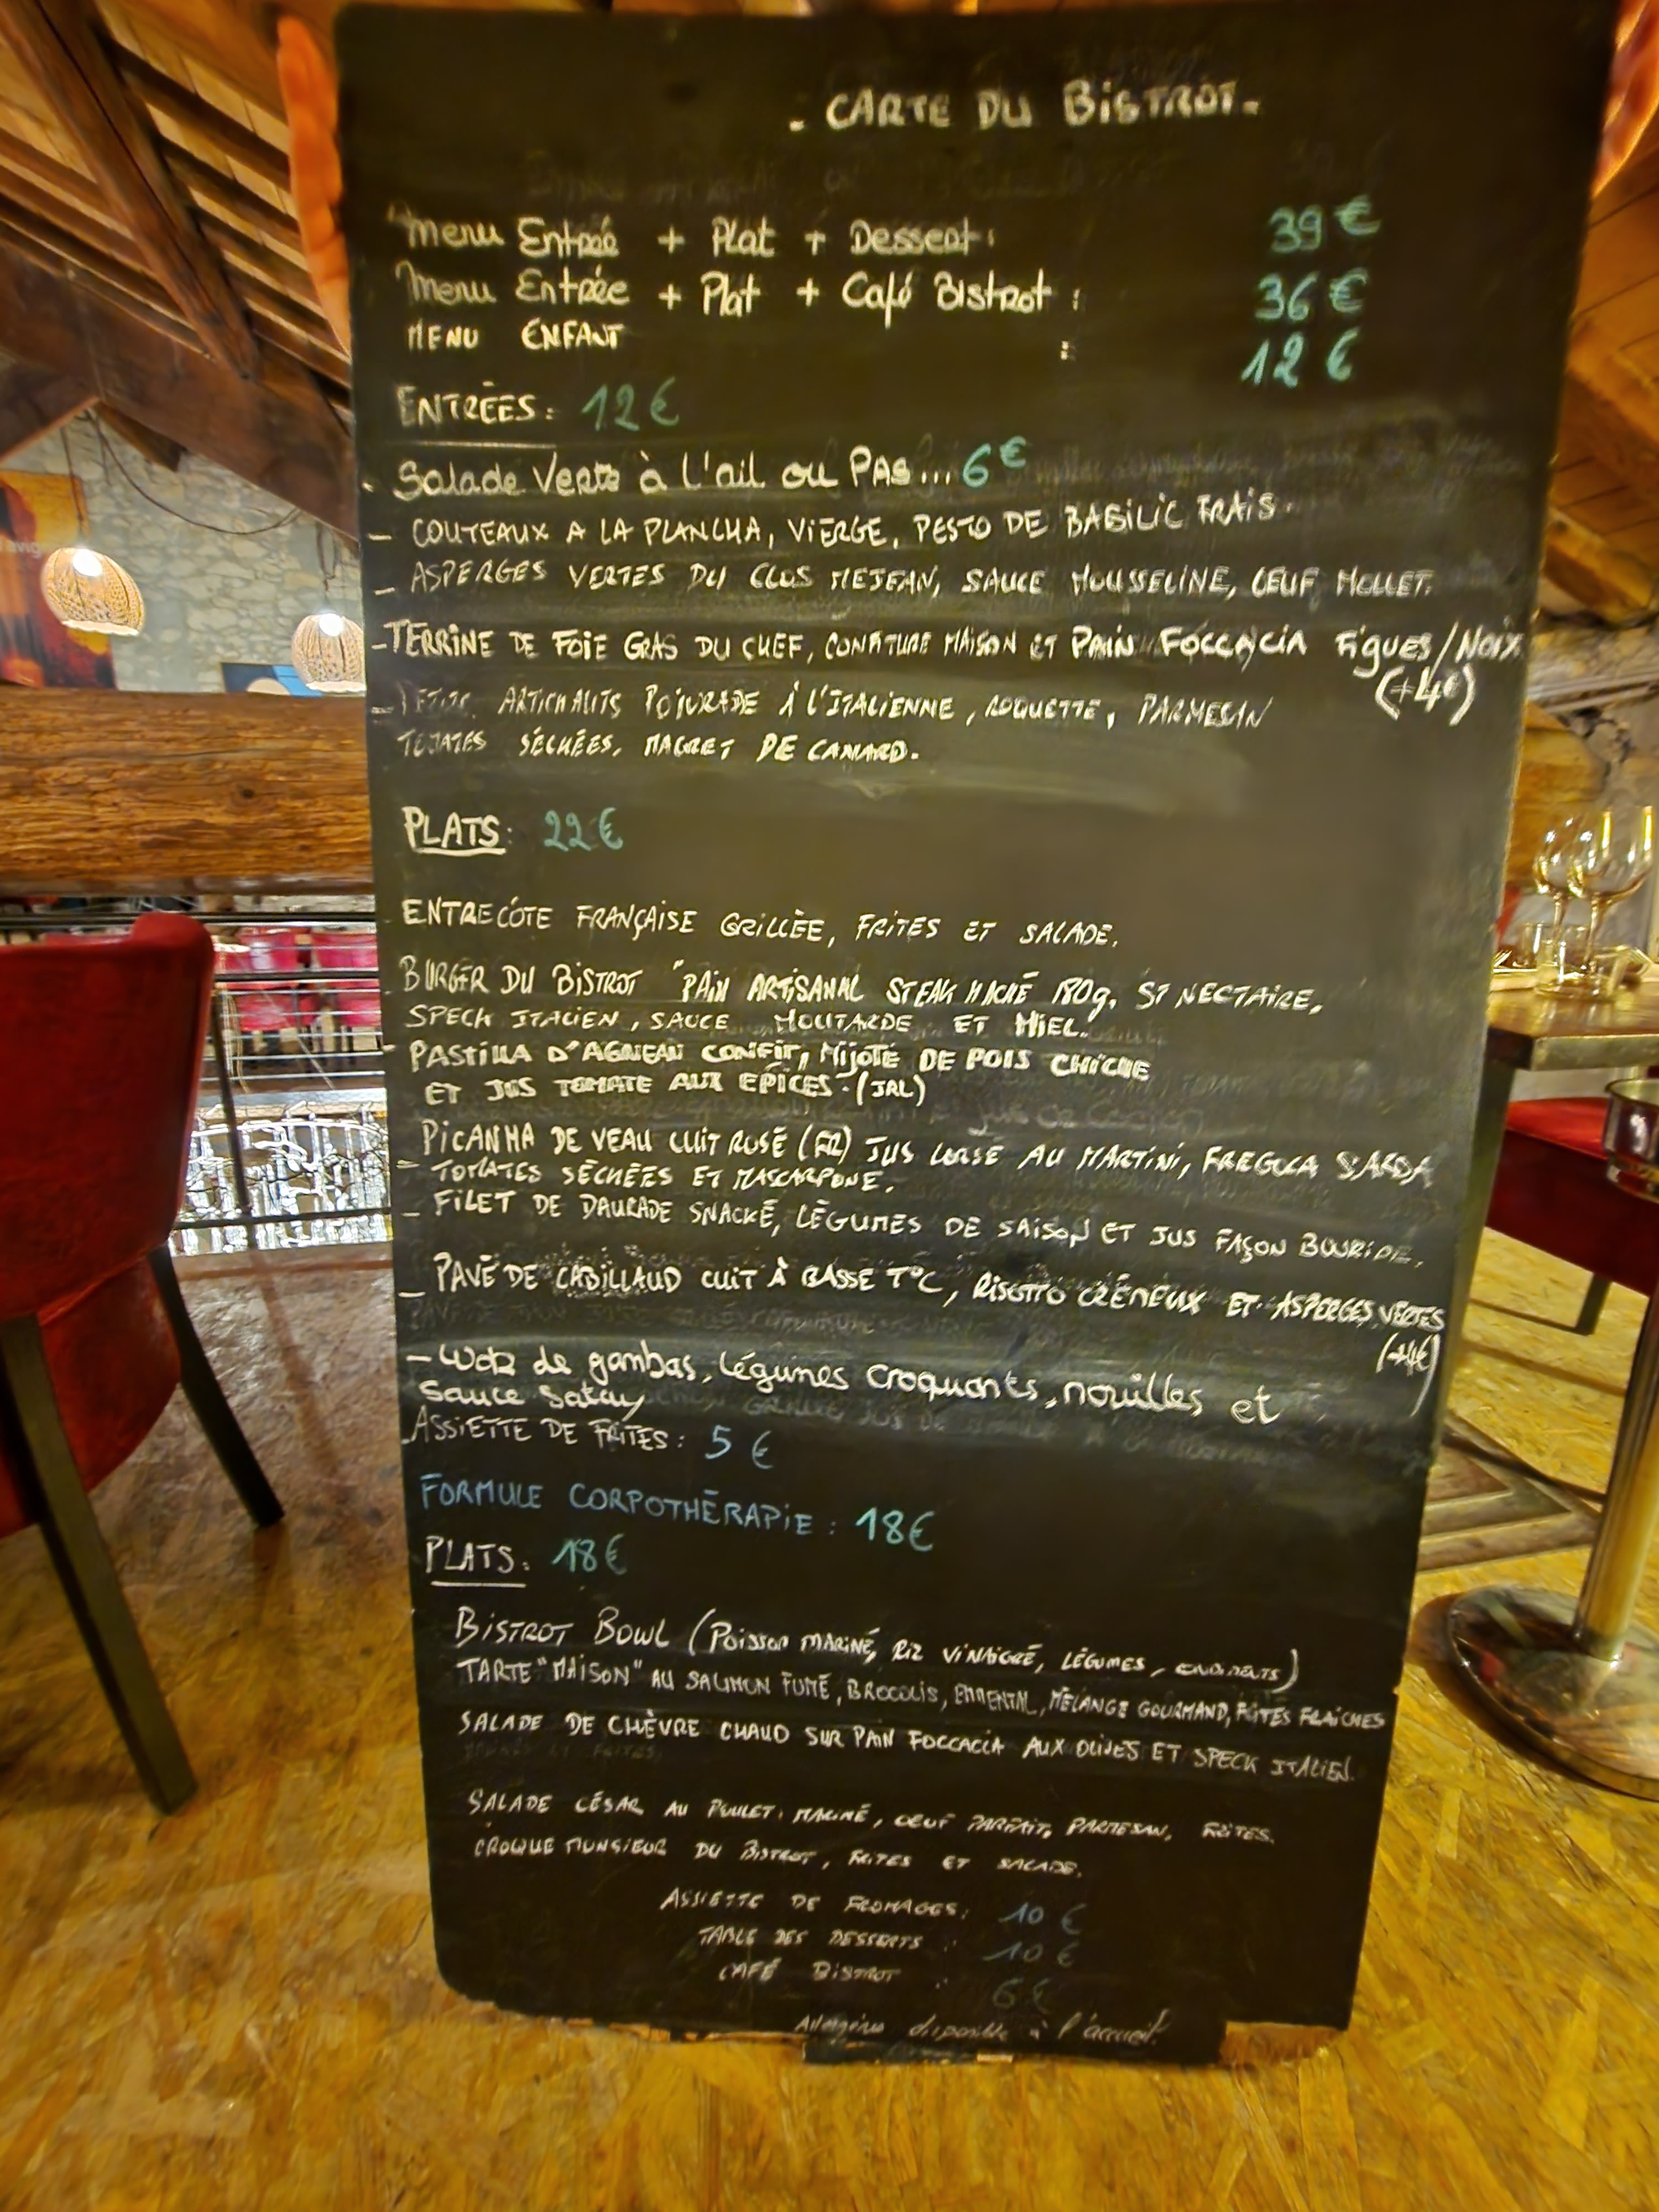 - CARTE DU BISTROT -
Menu Entrée + Plat + Dessert : 39 €
Menu Entrée + Plat + Café Bistrot : 36 €
MENU ENFANT : 12 €
ENTRÉES : 12 €
- Salade Verte à L'ail ou PAS... 6 €
- COUTEAUX A LA PLANCHA, VIERGE, PESTO DE BASILIC FRAIS.
- ASPERGES VERTES DU CLOS MEJEAN, SAUCE MOUSSELINE, OEUF MOLLET.
- TERRINE DE FOIE GRAS DU CHEF, CONFITURE MAISON ET PAIN FOCCACIA Figues/Noix
(+4€)
- PETITS ARTICHAUTS POIVRADE À L'ITALIENNE, ROQUETTE, PARMESAN
TOMATES SÉCHÉES, MAGRET DE CANARD.
PLATS : 22 €
ENTRECÔTE FRANÇAISE GRILLÉE, FRITES ET SALADE.
BURGER DU BISTROT "PAIN ARTISANAL STEAK HACHÉ 180g, ST NECTAIRE,
SPECK ITALIEN, SAUCE MOUTARDE ET MIEL.
- PASTILLA D'AGNEAU CONFIT, MIJOTÉ DE POIS CHICHE
ET JUS TOMATE AUX EPICES. (IRL)
- PICANHA DE VEAU CUIT ROSÉ (FR) JUS CORSÉ AU MARTINI, FREGOLA SARDA
TOMATES SÉCHÉES ET MASCARPONE.
- FILET DE DAURADE SNACKÉ, LÉGUMES DE SAISON ET JUS FAÇON BOURIDE.
- PAVÉ DE CABILLAUD CUIT À BASSE T°C, RISOTTO CRÉMEUX ET ASPERGES VERTES
(+4€)
- Wok de gambas, légumes croquants, nouilles et
sauce satay
- ASSIETTE DE FRITES : 5 €
FORMULE CORPOTHÉRAPIE : 18 €
PLATS : 18 €
BISTROT BOWL (POISSON MARINÉ, RIZ VINAIGRÉ, LÉGUMES, CONDIMENTS)
TARTE "MAISON" AU SAUMON FUMÉ, BROCOLIS, EMMENTAL, MÉLANGE GOURMAND, FRITES FRAICHES
SALADE DE CHÈVRE CHAUD SUR PAIN FOCCACIA AUX OLIVES ET SPECK ITALIEN.
SALADE CÉSAR AU POULET MARINÉ, OEUF PARFAIT, PARMESAN, FRITES.
CROQUE MONSIEUR DU BISTROT, FRITES ET SALADE.
ASSIETTE DE FROMAGES : 10 €
TABLE DES DESSERTS : 10 €
CAFÉ BISTROT : 6 €
Allergènes disponible à l'accueil.